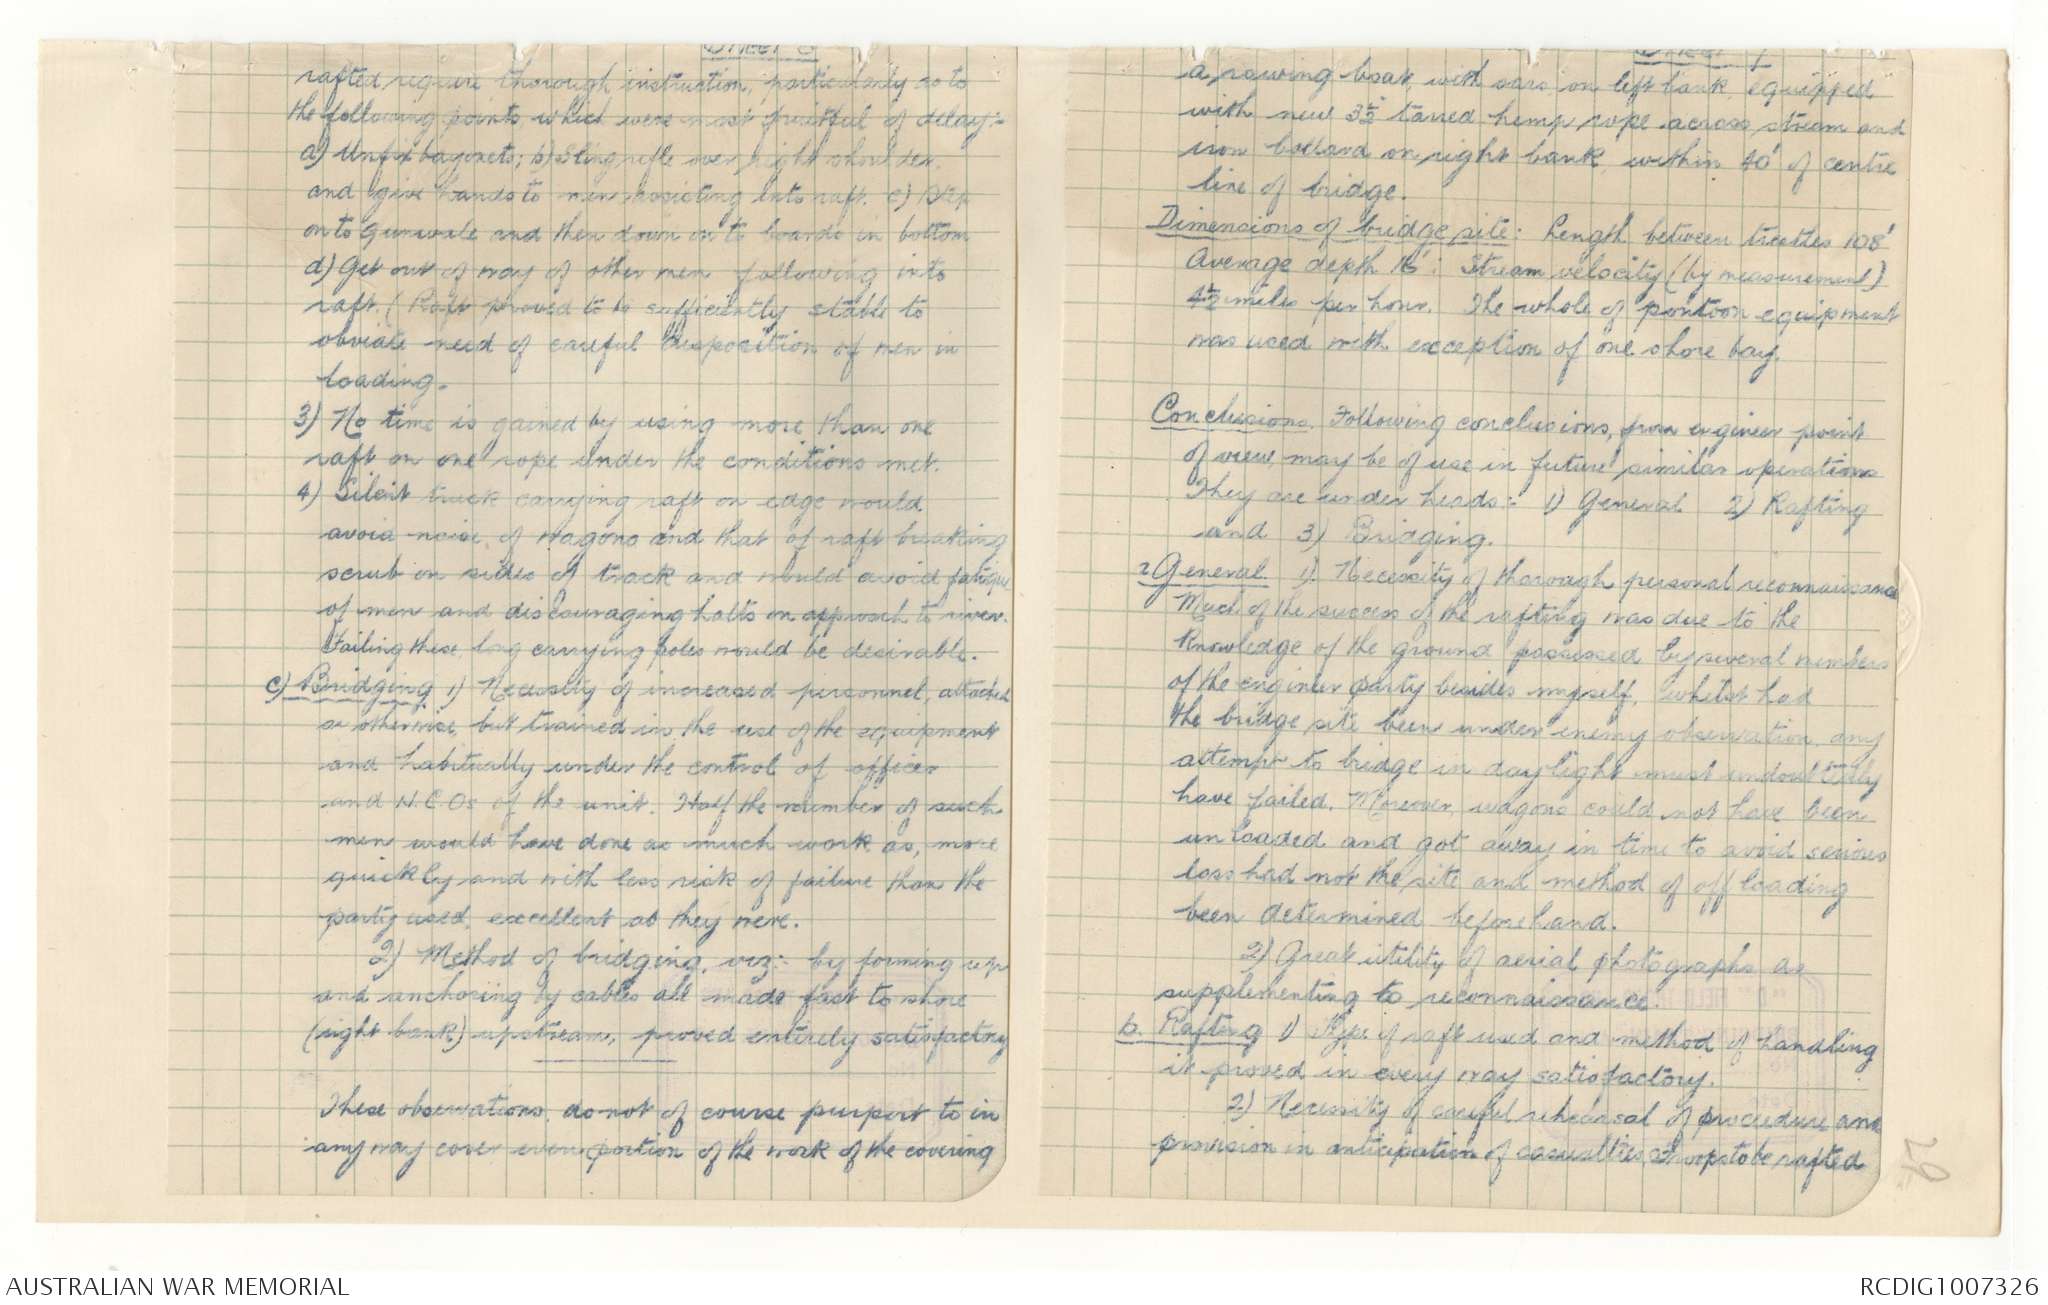 rafted require thorough instruction, particularly as to
the following points, which were most fruitful of delay:-
a) Unfix bayonets; b) Sling rifle over right shoulder.
and give hands to men assisting into raft. c) Step
on to gunwale and then down on to boards in bottom
d) Get out of way of other men following into
raft. (Raft proved to be sufficiently stable to
obviate need of careful disposition of men in
loading.
3) No time is gained by using more than one
raft on one rope under the conditions met.
4) Silent truck carrying raft on edge would
avoid noise of wagons and that of raft breaking
scrub on sides of track and would avoid fatigue
of men and discouraging halts on approach to river.
Failing these, long carrying poles would be desirable.
c) Bridging 1) Necessity of increased personnel, attached
or otherwise, but trained in the use of the equipment
and habitually under the control of officer
and N.C.Os of the unit. Half the number of such
men would have done as much work as, more
quickly and with less risk of failure than the
party used, excellent as they were.
2) Method of bridging, viz:- by forming up
and anchoring by cables all made fast to shore
(right bank) upstream, proved entirely satisfactory
These observations do not of course purport to in
any way cover even portion of the work of the covering
a rowing boat, with oars on left bank, equipped
with new 3½" tarred hemp rope across stream and
iron bollard on right bank within 40' of centre
line of bridge.
Dimensions of bridge site: Length between trestles 108'
Average depth 16': Stream velocity (by measurement)
4½ miles per hour. The whole of pontoon equipment
was used with exception of one shore bay.
Conclusions. Following conclusions, from engineer point
of view, may be of use in future similar operations
They are under heads:- 1) General 2) Rafting
and 3) Bridging.
General. 1) Necessity of thorough personal reconnaissance
Much of the success of the rafting was due to the
knowledge of the ground possessed by several members
of the engineer party besides myself, whilst had
the bridge site been under enemy observation, any
attempt to bridge in daylight must undoubtedly
have failed. Moreover, wagons could not have been
unloaded and got away in time to avoid serious
loss had not the site and method of off loading
been determined beforehand.
2) Great utility of aerial photographs as
supplementing to reconnaissance.
b. Rafting 1) Type of raft used and method of handling
it proved in every way satisfactory.
2) Necessity of careful rehearsal of procedure and
provision in anticipation of casualties. Troops to be rafted
AUSTRALIAN WAR MEMORIAL
RCDIG1007326